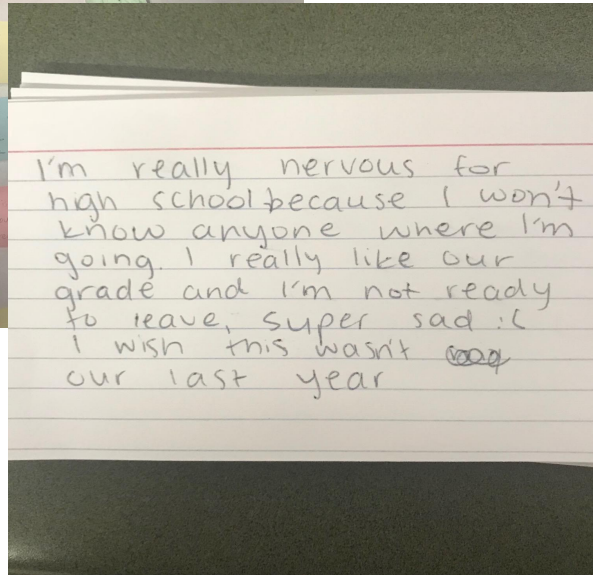 I'm really nervous for
high school because I won't
know anyone where I'm
going. I really like our
grade and I'm not ready
to leave, super sad :(
I wish this wasn't
our last year